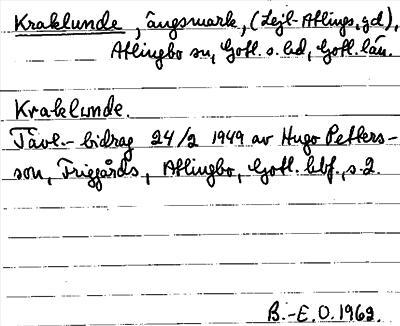 Kraklunde, ängsmark, (Lejl-Atlings, gd),
Atlingbo sn, Gotl. s. hd, Gotl. län.
Kraklunde.
Tävl.- bidrag 24/2 1949 av Hugo Petters-
son, Friggårds, Atlingbo, Gotl. hbf., s. 2.
B.-E.O. 1962.